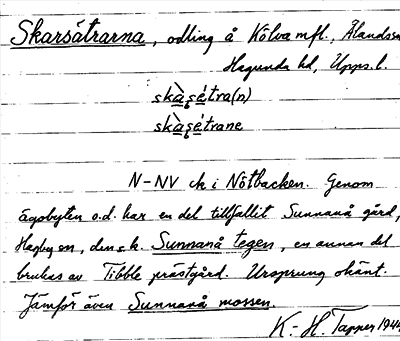 Skarsätrarna, odling å Kölva m fl., Ålandss
Hagunda hd, Upps. l.
skàsétra(n)
skàsétrane
N-NV ck i Nötbacken. Genom
ägobyten o.d. har en del tillfallit Sunnanå gård,
Hagby sn, den s.k. Sunnanå tegen, en annan del
brukas av Tibble prästgård. Ursprung okänt.
Jämför även Sunnanå mossen
K.-H. Tapper 1944